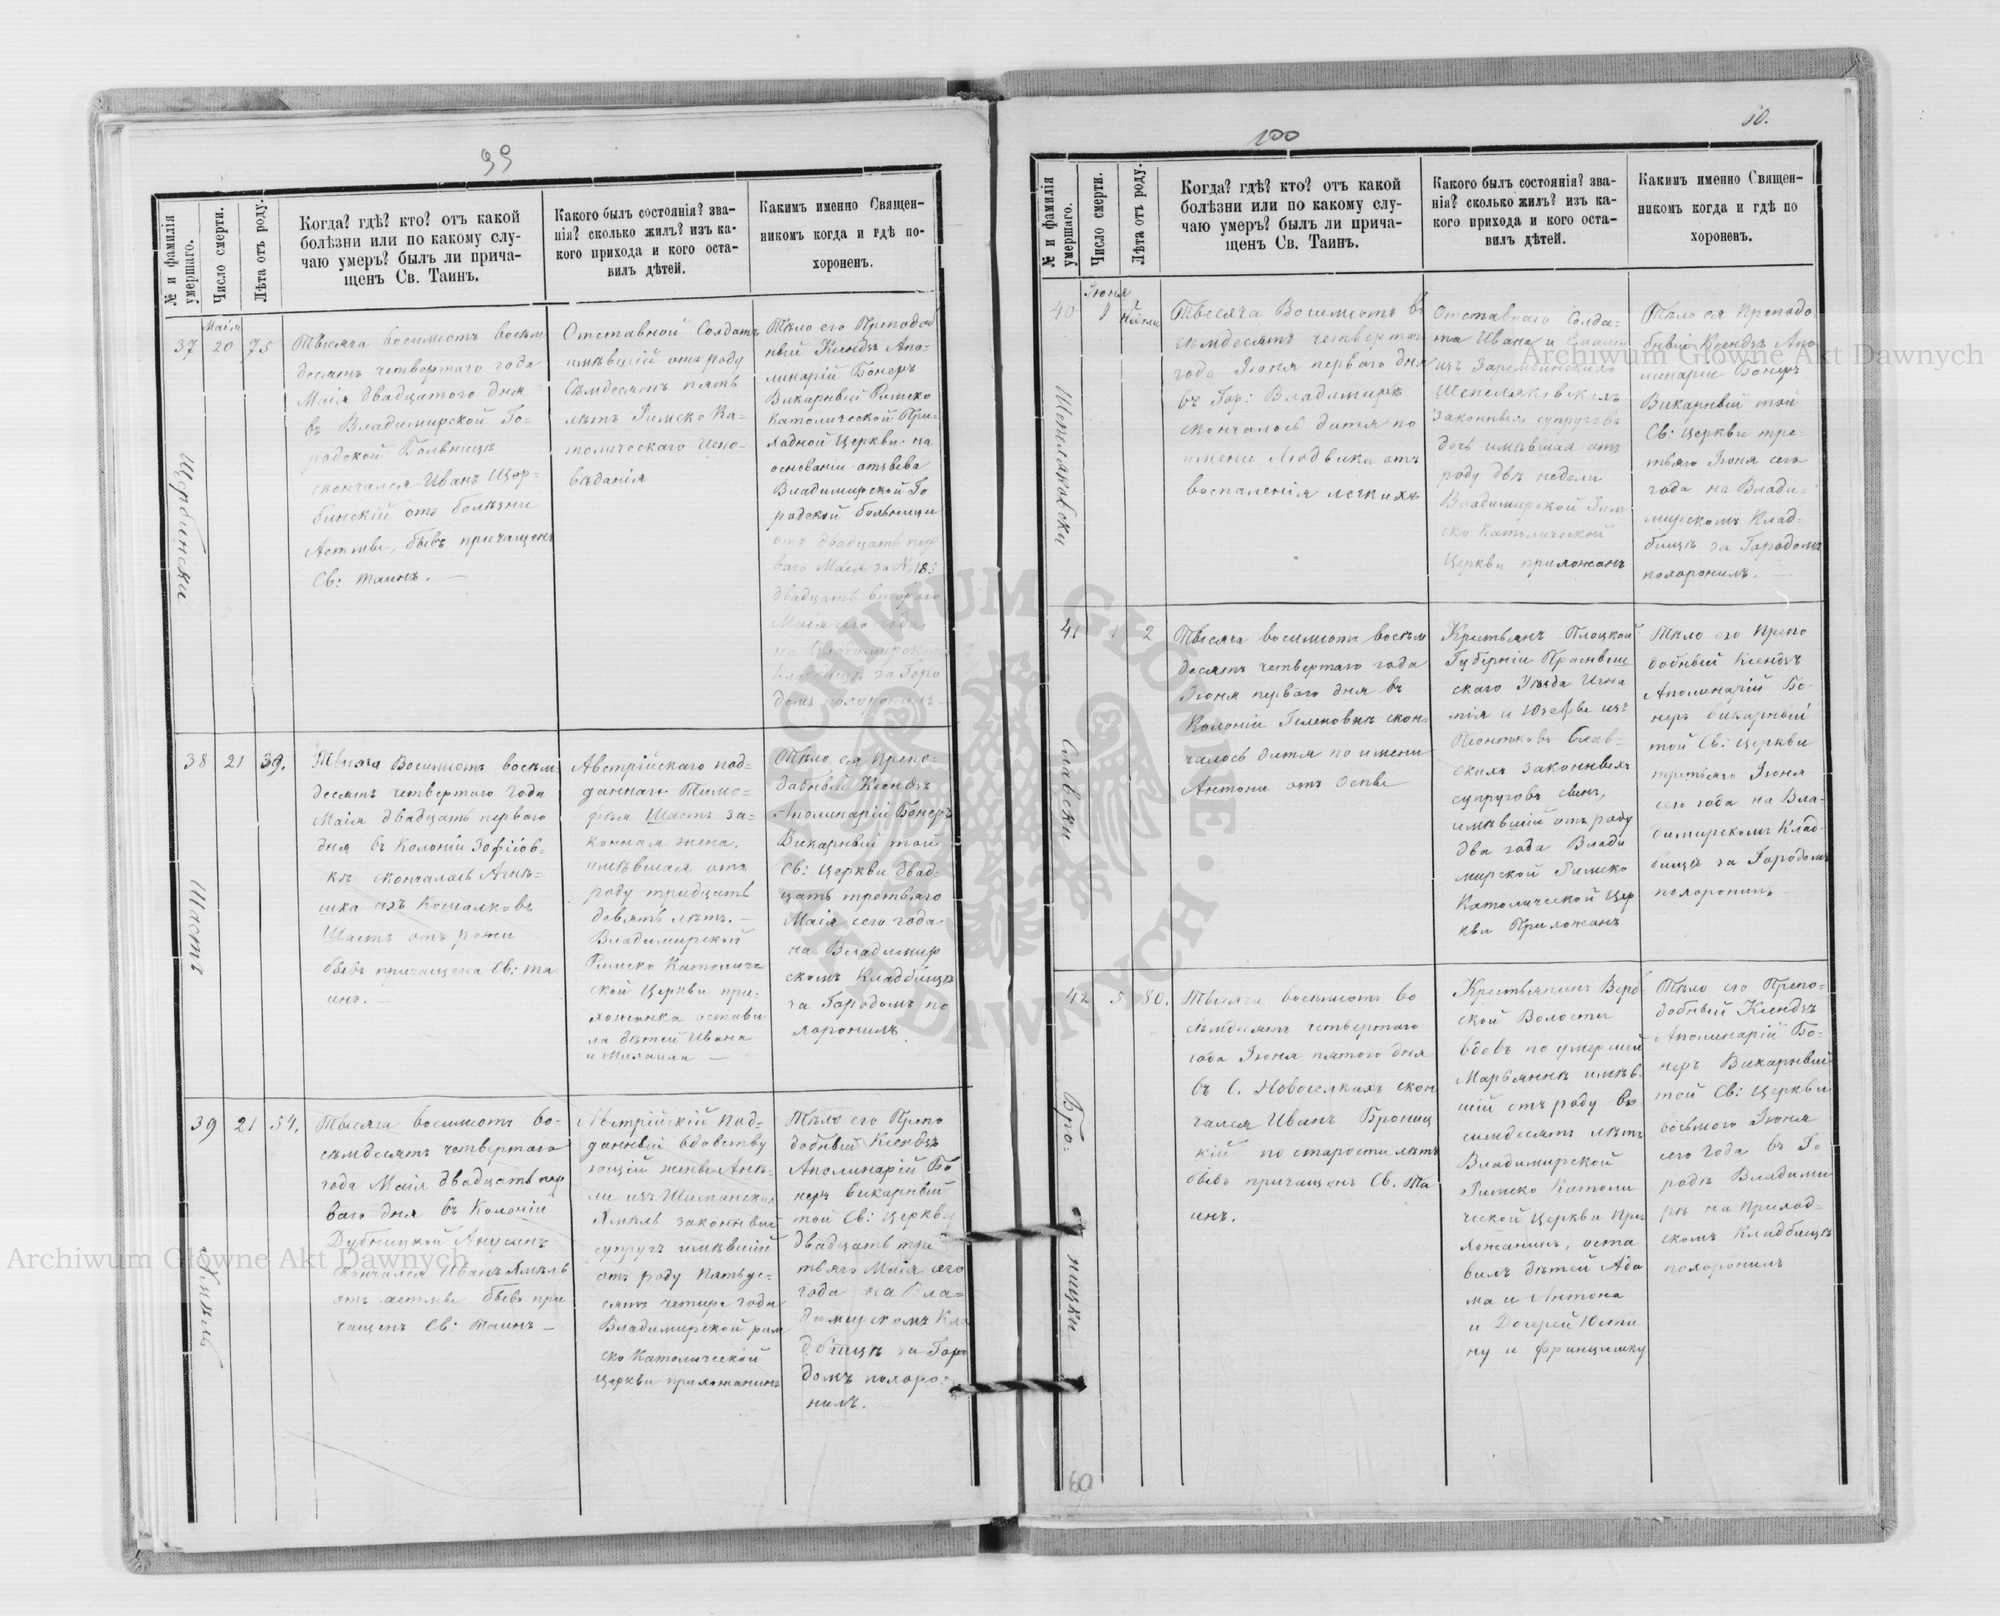 99
№ и фамилія умершаго.
Число смерти.
Лѣта отъ роду.
Когда? гдѣ? кто? отъ какой
болѣзни или по какому слу-
чаю умеръ? былъ ли прича-
щенъ Св. Таинъ.
Какого былъ состоянія? зва-
нія? сколько жилъ? изъ ка-
кого прихода и кого оста-
вилъ дѣтей.
Какимъ именно Священ-
никомъ когда и гдѣ по-
хороненъ.
37
Маія
20
75
Щербински
Тысяча восимсотъ восѣм
десятъ четвертаго года
Маія двадцатого дня
въ Владимирской Го-
родской Больницѣ
скончался Иванъ Щер-
бинскій отъ болѣзни
Астмы, бывъ причащенъ
Св: таинъ. —
Отставной Солдатъ
имѣвшій отъ роду
Семдесятъ пять
лѣтъ Римско Ка-
толическаго Испо-
вѣданія
Тѣло его Преподоб
ный Ксендзъ Апо-
линарій Бонеръ
Викарный Римско
Католической При-
ходной Церкви на
основаніи отзыва
Владимирской Го
родской больницы
отъ двадцать пер
ваго Маія за №
двадцать второго
Маія сего года
на Владимирском
Кладбищѣ за Горо
домъ похоронилъ.
38
21
39.
Шастъ
Тысяча Восимсотъ восѣм-
десятъ четвертаго года
Маія двадцать перваго
дня въ Колоніи Зофіов-
кѣ скончалась Агнѣ-
шка изъ Кошалковъ
Шастъ отъ рожи
бывъ причащена Св: та
инъ. —
Австрійскаго под-
даннаго Тимо-
фея Шастъ за-
конная жена,
имѣвшая отъ
роду тридцать
девять лѣтъ. —
Владимирской
Римско Католиче
ской Церкви при-
хожанка остави
ла дѣтей Ивана
и Михаила —
Тѣло ея Препо-
добный Ксендзъ
Аполинарій Бонеръ
Викарный той
Св: Церкви двад-
цать третьяго
Маія сего года
на Владимир
скомъ Кладбищѣ
за Городомъ по
хоронилъ
39
21
54.
Хмѣль
Тысяча восимсотъ во-
сѣмдесятъ четвертаго
года Маія двадцать пер
ваго дня въ Колоніи
скончался Иванъ Хмѣль
отъ астмы бывъ при
чащенъ Св: Таинъ —
Австрійскій под-
данный вдовству
ющій жены Анѣ-
ли изъ Шиманскихъ
Хмѣль законный
супругъ имѣвшій
отъ роду пятьде-
сятъ четыре года
Владимирской рим
ско Католической
Церкви прихожанинъ
Тѣло его Препо
добный Ксендзъ
Аполинарій Бо
неръ Викарный
той Св: Церкви
двадцать тре
тьяго Маія сего
года на Вла-
димирскомъ Кла
дбищѣ за Горо
домъ похоро-
нилъ.
100
50.
№ и фамилія умершаго.
Число смерти.
Лѣта отъ роду.
Когда? гдѣ? кто? отъ какой
болѣзни или по какому слу-
чаю умеръ? былъ ли прича-
щенъ Св. Таинъ.
Какого былъ состоянія? зва-
нія? сколько жилъ? изъ ка-
кого прихода и кого оста-
вилъ дѣтей.
Какимъ именно Священ-
никомъ когда и гдѣ по
хороненъ.
40
Іюня
1
Шепеляковски
Тысяча Восимсотъ во
сѣмдесятъ четвертаго
года Іюня перваго дня
въ Гор: Владимирѣ
скончалось дитя по
имени Людвика отъ
воспаленія легкихъ
Отставнаго Солда-
та Ивана и
изъ Зарембинскихъ
Шепеляковскихъ
законныхъ супруговъ
дочь имѣвшая отъ
роду двѣ недели
Владимирской Рим
ско Католической
Церкви прихожанъ
Тѣло ея Преподо-
бный Ксендзъ Апо
линарій Бонеръ
Викарный той
Св: Церкви тре-
тьяго Іюня сего
года на Влади-
мирскомъ Клад-
бищѣ за Городомъ
похоронилъ. —
41
1
2
Славски
Тысяча восимсотъ восѣм
десятъ четвертаго года
Іюня перваго дня въ
Колоніи Геленовкѣ скон-
чалось дитя по имени
Антони отъ Оспы
Крестьянъ Плоцкой
Губерніи Прасныш
скаго Уѣзда Игна
тія и Юзефы изъ
Піонтковъ Слав-
скихъ законныхъ
супруговъ сынъ,
имѣвшій отъ роду
два года Влади
мирской Римско
Католической Цер
кви Прихожанъ
Тѣло его Препо
добный Ксендзъ
Аполинарій Бо-
неръ Викарный
той Св: Церкви
третьяго Іюня
сего года на Вла-
димирскомъ Клад-
бищѣ за Городомъ
похоронилъ —
42
5
80.
Бро-
ницки
Тысяча восимсотъ во
сѣмдесятъ четвертаго
года Іюня пятого дня
въ С. Новоселкахъ скон
чался Иванъ Брониц
кій по старости лѣтъ
бывъ причащенъ Св. Та
инъ.
Крестьянинъ Верб
ской Волости
вдовъ по умершей
Марьяннѣ имѣв-
шій отъ роду во
симдесятъ лѣтъ
Владимирской
Римско Католи
ческой Церкви При
хожанинъ, оста
вилъ дѣтей Ада
ма и Антона
и Дочерей Юсти
ну и Францишку
Тѣло его Препо-
добный Ксендзъ
Аполинарій Бо-
неръ Викарный
той Св: Церкви
восьмого Іюня
сего года въ Го
родѣ Владими
рѣ на Приход-
скомъ Кладбищѣ
похоронилъ
60
Archiwum Główne Akt Dawnych
Archiwum Główne Akt Dawnych